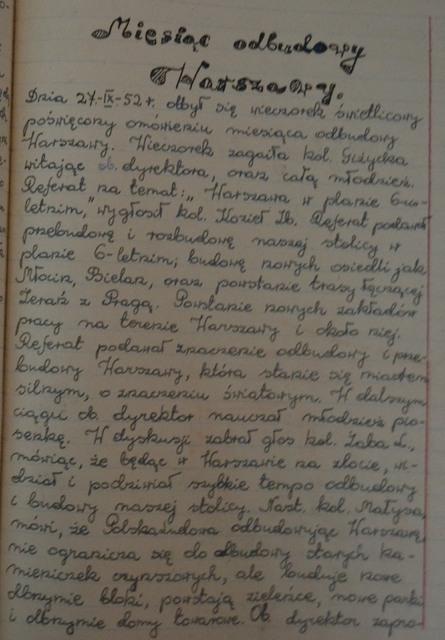 Miesiąc odbudowy
Warszawy.
Dnia 27-IX-52 r. odbył się wieczorek świetlicowy
poświęcony omówieniu miesiąca odbudowy
Warszawy. Wieczorek zagaiła kol. Giżycka
witając ob. dyrektora, oraz całą młodzież.
Referat na temat: „Warszawa w planie 6-cio
letnim," wygłosił kol. Kozieł Zb. Referat podawał
przebudowę i rozbudowę naszej stolicy w
planie 6-letnim; budowę nowych osiedli jak
Młocin, Bielan, oraz powstanie trasy łączącej
Żerań z Pragą. Powstanie nowych zakładów
pracy na terenie Warszawy i około niej.
Referat podawał znaczenie odbudowy i prze-
budowy Warszawy, która stanie się miastem
silnym, o znaczeniu światowym. W dalszym
ciągu ob. dyrektor nauczał młodzież pio-
senkę. W dyskusji zabrał głos kol. Żaba L.,
mówiąc, że będąc w Warszawie na zlocie, wi-
dział i podziwiał szybkie tempo odbudowy
i budowy naszej stolicy. Nast. kol. Małysa,
mówi, że Polska Ludowa odbudowując Warszawę,
nie ogranicza się do odbudowy starych ka-
mieniczek czynszowych, ale buduje nowe
olbrzymie bloki, powstają zieleńce, nowe parki
i olbrzymie domy towarowe. Ob. dyrektor zapro-